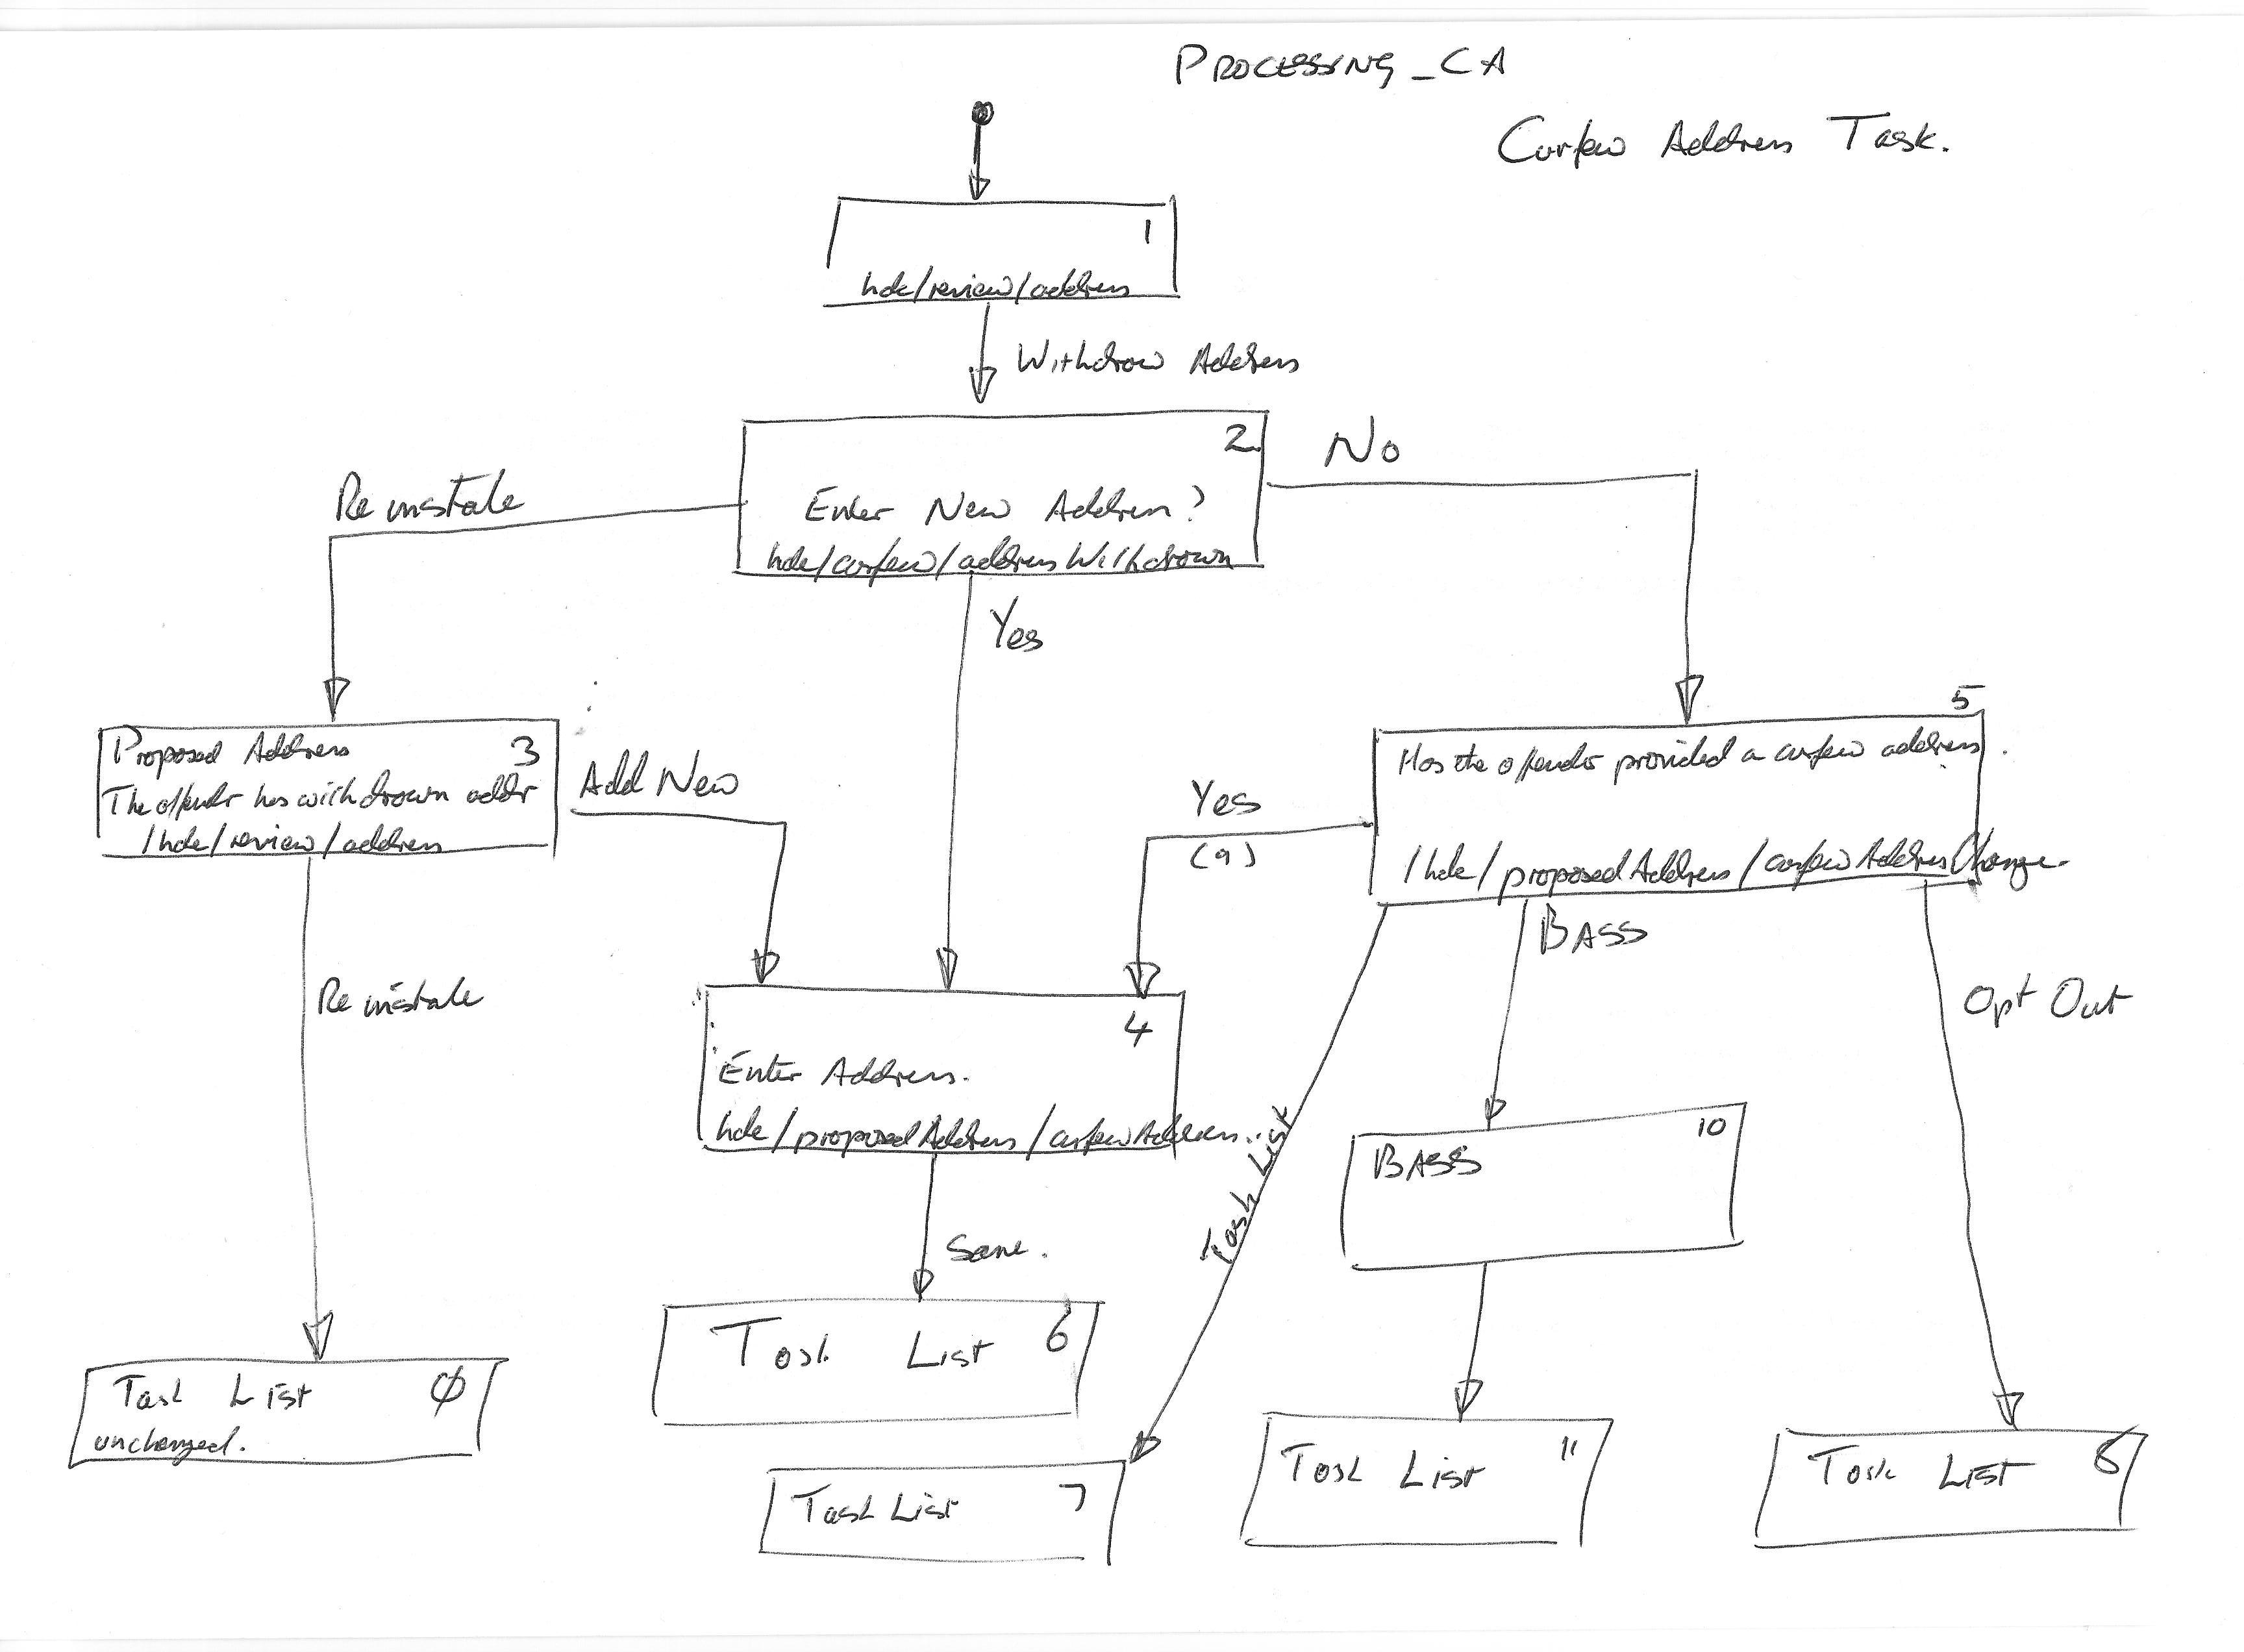 PROCESSING_CA
Curfew Address Task.
1
hdc/review/address
Withdraw Address
2
No
Reinstate
Enter New Address?
hdc/curfew/addressWithdrawn
Yes
5
Proposed Address 3
The offender has withdrawn addr
/hdc/review/address
Add New
Has the offender provided a curfew address.
Yes
(9)
/hdc/proposedAddress/curfewAddressChange.
BASS
Reinstate
Opt Out
4
Enter Address.
hdc/proposedAddress/curfewAddress...
Task List
10
BASS
Save.
Task List 6
Task List 0
unchanged.
Task List 7
Task List 11
Task List 8